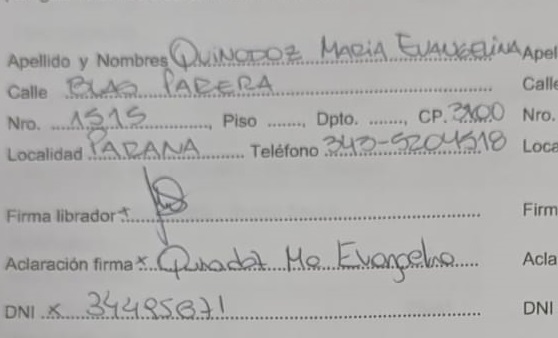 Apellido y Nombres QUINODOZ MARIA EVANGELINA Apel
Calle BLAS PARERA Calle
Nro. 1515, Piso ......, Dpto. ......, CP. 3100 Nro.
Localidad PARANA Teléfono 343-5204518 Loca
Firma librador x Firm
Aclaración firma x Quinodoz Ma Evangelina Acla
DNI x 34495871 DNI